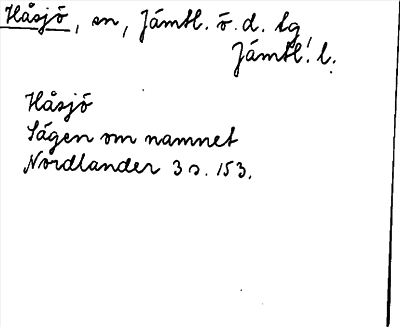 Håsjö, sn, Jämtl. ö. d. lg,
Jämtl. l.
Håsjö
Sägen om namnet
Nordlander 3 s. 153.